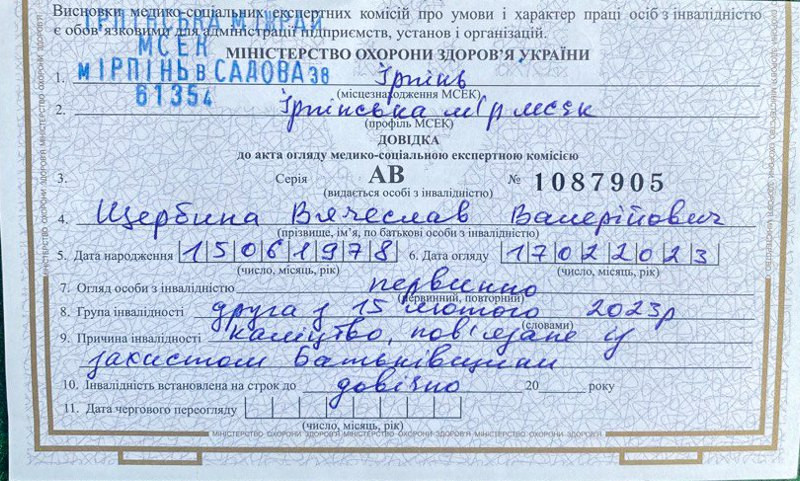 Висновки медико-соціальних експертних комісій про умови і характер праці осіб з інвалідністю
є обов'язковими для адміністрації підприємств, установ і організацій.
МСЕК
м ІРПІНЬ в САДОВА 38
61354
МІНІСТЕРСТВО ОХОРОНИ ЗДОРОВ'Я УКРАЇНИ
1. Ірпінь
(місцезнаходження МСЕК)
2. Ірпінська м/р МСЕК
(профіль МСЕК)
ДОВІДКА
до акта огляду медико-соціальною експертною комісією
3. Серія АВ № 1087905
(видається особі з інвалідністю)
4. Щербина Вячеслав Валерійович
(прізвище, ім'я, по батькові особи з інвалідністю)
5. Дата народження 15061978 6. Дата огляду 17022023
(число, місяць, рік) (число, місяць, рік)
7. Огляд особи з інвалідністю первинно
(первинний, повторний)
8. Група інвалідності друга з 15 лютого 2023р
(словами)
9. Причина інвалідності каліцтво, пов'язане із
захистом Батьківщини
10. Інвалідність встановлена на строк до довічно 20 року
11. Дата чергового переогляду
(число, місяць, рік)
МІНІСТЕРСТВО ОХОРОНИ ЗДОРОВ'Я МІНІСТЕРСТВО ОХОРОНИ ЗДОРОВ'Я